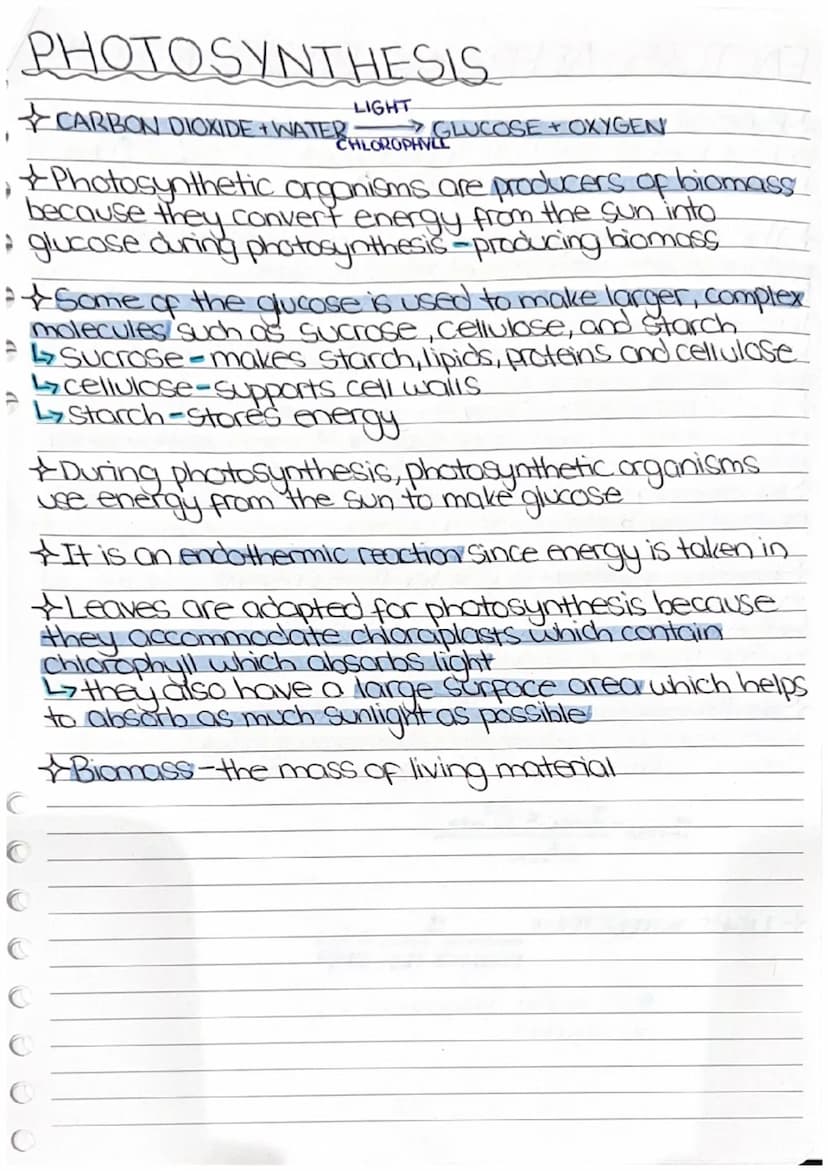 PHOTOSYNTHESIS
LIGHT
✧ CARBON DIOXIDE + WATER ⟶ GLUCOSE + OXYGEN
CHLOROPHYLL
✧ Photosynthetic organisms are producers of biomass
because they convert energy from the sun into
glucose during photosynthesis - producing biomass
✧ Some of the glucose is used to make larger, complex
molecules such as sucrose, cellulose, and starch
↳ sucrose - makes starch, lipids, proteins and cellulose
↳ cellulose - supports cell walls
↳ starch - stores energy
✧ During photosynthesis, photosynthetic organisms
use energy from the sun to make glucose
✧ It is an endothermic reaction since energy is taken in
✧ Leaves are adapted for photosynthesis because
they accommodate chloroplasts which contain
chlorophyll which absorbs light
↳ they also have a large surface area which helps
to absorb as much sunlight as possible
✧ Biomass - the mass of living material